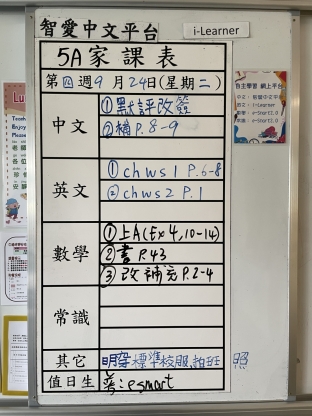 智愛中文平台
i-Learner
5A家課表
第四週9月24日(星期二)
中文
①默評改簽
②補P.8-9
英文
①chws1 P.6-8
②chws2 P.1
數學
①上A(Ex4,10-14)
②書P.43
③改補充P.2-4
常識
其它
明穿標準校服,拍班照
值日生
自主學習 網上平台